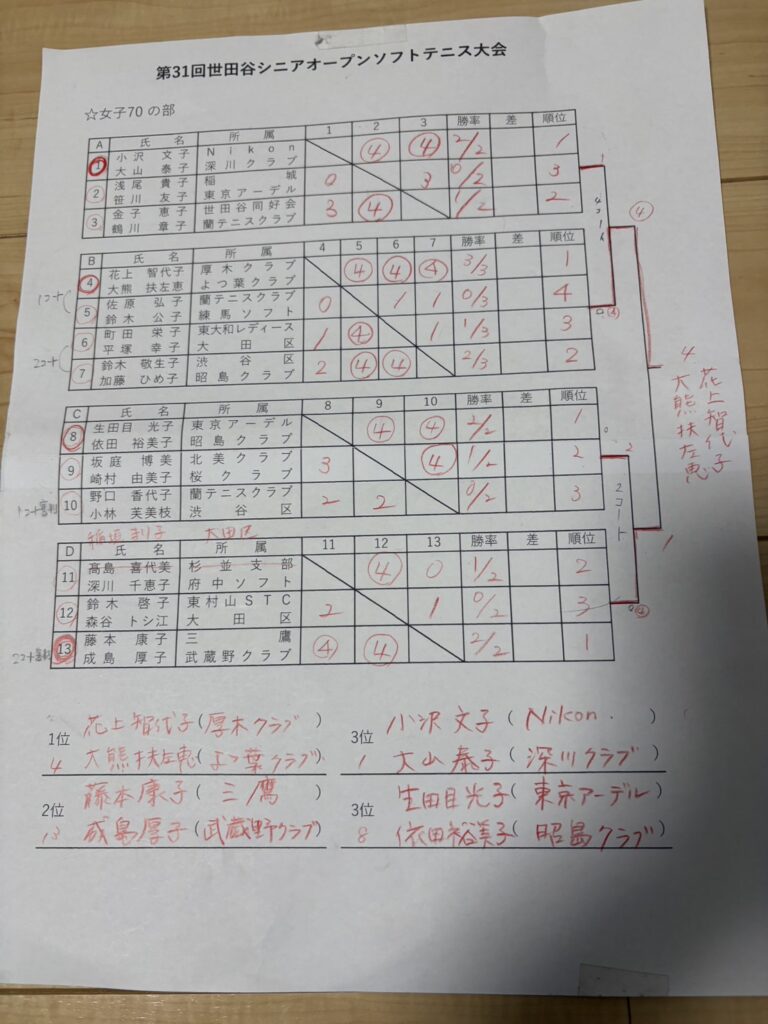 第31回世田谷シニアオープンソフトテニス大会
☆女子70の部
A 氏名 所属 1 2 3 勝率 差 順位
1 小沢 文子 Nikon ④ ④ 2/2 1
大山 泰子 深川クラブ
2 浅尾 貴子 稲城 0 3 0/2 3
笹川 友子 東京アーデル
3 金子 恵子 世田谷同好会 3 ④ 1/2 2
鶴川 章子 蘭テニスクラブ
B 氏名 所属 4 5 6 7 勝率 差 順位
4 花上 智代子 厚木クラブ ④ ④ ④ 3/3 1
大熊 扶左恵 よつ葉クラブ
5 佐原 弘子 蘭テニスクラブ 0 1 1 0/3 4
鈴木 公子 練馬ソフト
6 町田 栄子 東大和レディース 1 ④ 1 1/3 3
平塚 幸子 大田区
7 鈴木 敬生子 渋谷区 2 ④ ④ 2/3 2
加藤 ひめ子 昭島クラブ
C 氏名 所属 8 9 10 勝率 差 順位
8 生田目 光子 東京アーデル ④ ④ 2/2 1
依田 裕美子 昭島クラブ
9 坂庭 博美 北美クラブ 3 ④ 1/2 2
崎村 由美子 桜クラブ
10 野口 香代子 蘭テニスクラブ 2 2 0/2 3
小林 芙美枝 渋谷区
大田区
D 氏名 所属 11 12 13 勝率 差 順位
11 髙島 喜代美 杉並支部 ④ 0 1/2 2
深川 千恵子 府中ソフト
12 鈴木 啓子 東村山STC 2 1 0/2 3
森谷 トシ江 大田区
13 藤本 康子 三鷹 ④ ④ 2/2 1
成島 厚子 武蔵野クラブ
1
4コート
0 ④
④
4 花上智代子
大熊扶左恵
0 2
2コート
1
0 ④
1位 花上智代子(厚木クラブ)
4 大熊扶左恵(よつ葉クラブ)
2位 藤本康子(三鷹)
13 成島厚子(武蔵野クラブ)
3位 小沢文子(Nikon.)
1 大山泰子(深川クラブ)
3位 生田目光子(東京アーデル)
8 依田裕美子(昭島クラブ)